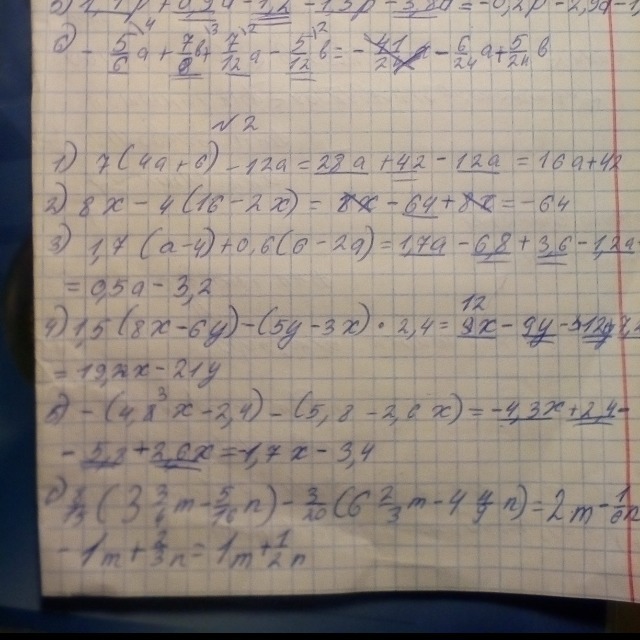 1,1p + 0,9a - 1,2 - 1,3p - 3,8a = -0,2p - 2,9a - 1
6) - 5/6 a + 7/8 b + 7/12 a - 5/12 b = - 6/24 a + 5/24 b
№2
1) 7(4a+6) - 12a = 28a + 42 - 12a = 16a + 42
2) 8x - 4(16 - 2x) = 8x - 64 + 8x = -64
3) 1,7(a-4) + 0,6(6-2a) = 1,7a - 6,8 + 3,6 - 1,2a
= 0,5a - 3,2
4) 1,5(8x-6y) - (5y-3x) · 2,4 = 12x - 9y - 12y
= 19,2x - 21y
5) -(4,3x - 2,4) - (5,8 - 2,6x) = -4,3x + 2,4 -
- 5,8 + 2,6x = -1,7x - 3,4
6) 8/15 (3 3/4 m - 5/16 n) - 3/20 (6 2/3 m - 4 4/9 n) = 2m - 1/6 n
- 1m + 2/3 n = 1m + 1/2 n